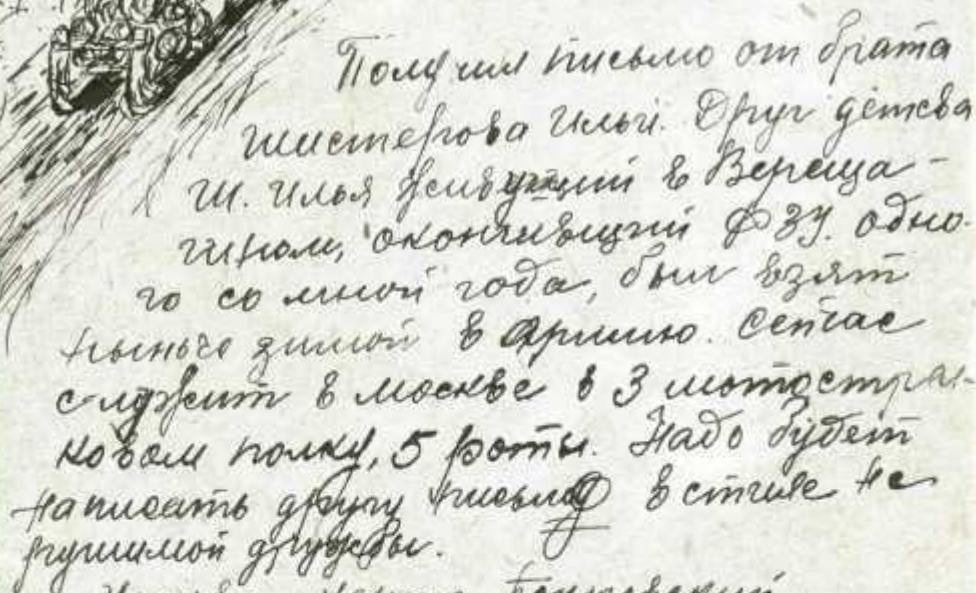 Получил письмо от брата
Шистерова Ильи. Друг детсва
Ш. Илья живущий в Вереща-
гином, окончивщий ФЗУ. одно-
го со мной года, был взят
нынче зимой в Армию. Сейчас
служит в москве в 3 мотострел-
ковом полку, 5 роты. Надо будет
написать другу письмо в стиле не
рушимой дружбы.